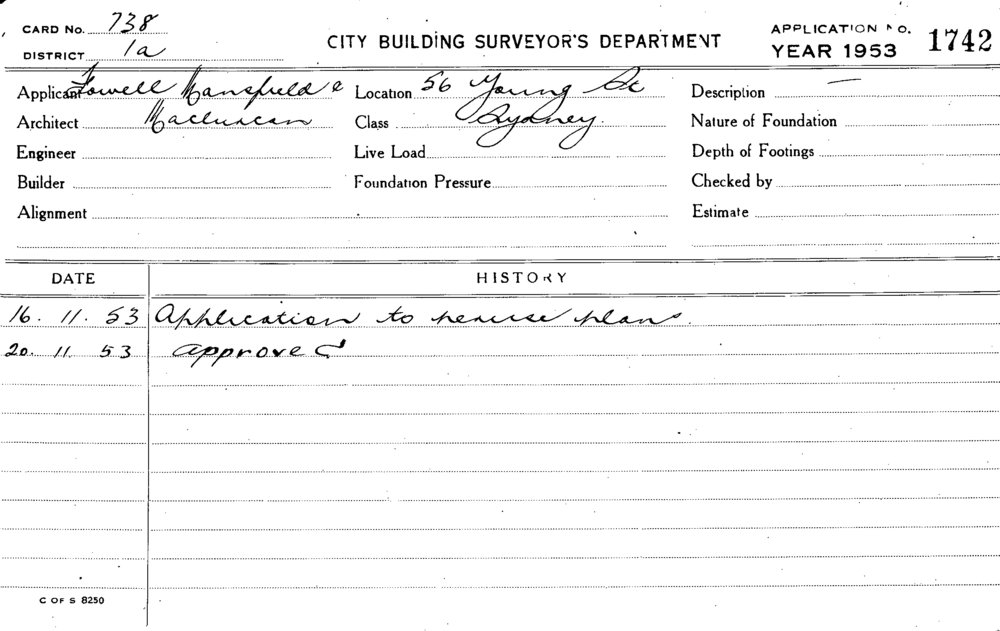 CARD No. 738
DISTRICT 1a
CITY BUILDING SURVEYOR'S DEPARTMENT
APPLICATION NO. 1742
YEAR 1953
Applicant Fowell Mansfield &
Architect Maclurcan
Engineer
Builder
Alignment
Location 56 Young St
Class Sydney.
Live Load
Foundation Pressure
Description —
Nature of Foundation
Depth of Footings
Checked by
Estimate
DATE HISTORY
16. 11. 53 Application to peruse plans.
20. 11. 53 approved
C OF S 8250